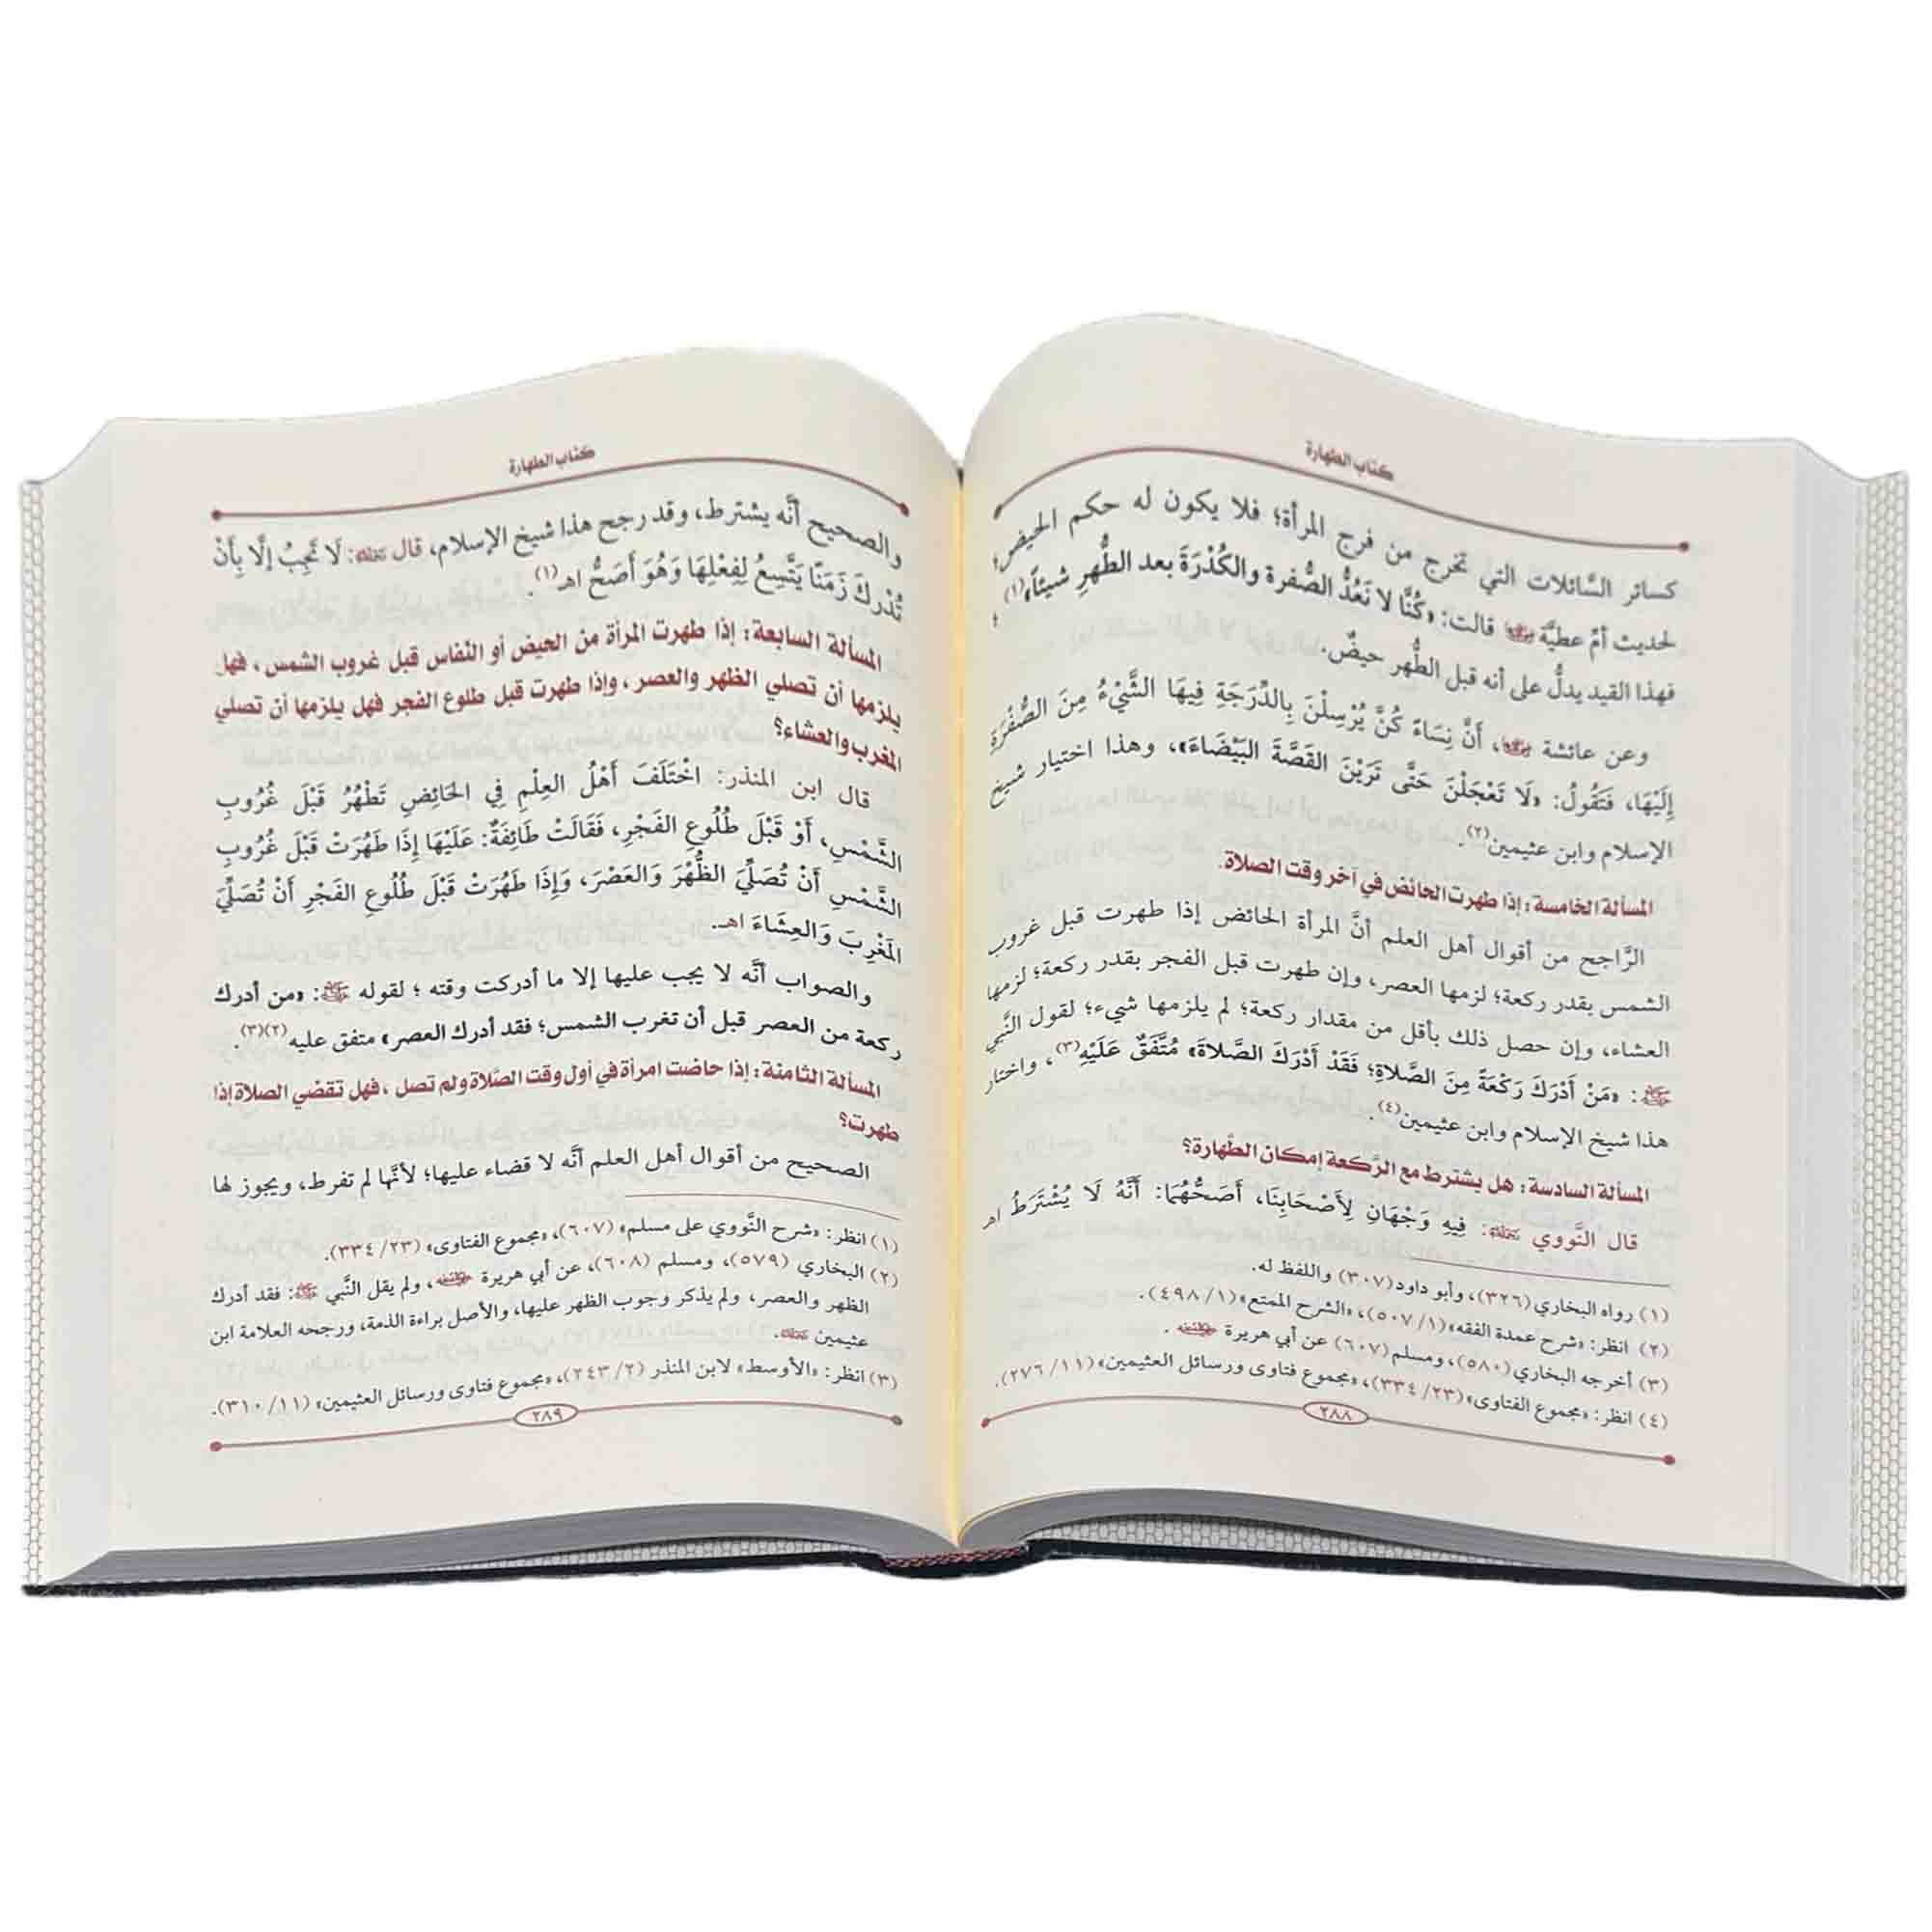 كتاب الطهارة
كسائر السَّائلات التي تخرج من فرج المرأة؛ فلا يكون له حكم الحيض؛
لحديث أمِّ عطيَّة ﵂ قالت: «كُنَّا لا نَعُدُّ الصُّفرة والكُدْرَةَ بعد الطُّهرِ شيئاً»(١)؛
فهذا القيد يدلُّ على أنه قبل الطُّهر حيضٌ.
وعن عائشة ﵂، أَنَّ نِسَاءً كُنَّ يُرْسِلْنَ بِالدِّرَجَةِ فِيهَا الشَّيْءُ مِنَ الصُّفْرَةِ
إِلَيْهَا، فَتَقُولُ: «لَا تَعْجَلْنَ حَتَّى تَرَيْنَ القَصَّةَ البَيْضَاءَ»، وهذا اختيار شيخ
الإسلام وابن عثيمين(٢).
المسألة الخامسة: إذا طهرت الحائض في آخر وقت الصلاة.
الرَّاجح من أقوال أهل العلم أنَّ المرأة الحائض إذا طهرت قبل غروب
الشمس بقدر ركعة؛ لزمها العصر، وإن طهرت قبل الفجر بقدر ركعة؛ لزمها
العشاء، وإن حصل ذلك بأقل من مقدار ركعة؛ لم يلزمها شيء؛ لقول النَّبي
ﷺ: «مَنْ أَدْرَكَ رَكْعَةً مِنَ الصَّلاةِ؛ فَقَدْ أَدْرَكَ الصَّلاةَ» مُتَّفَقٌ عَلَيْهِ(٣)، واختار
هذا شيخ الإسلام وابن عثيمين(٤).
المسألة السادسة: هل يشترط مع الرَّكعة إمكان الطَّهارة؟
قال النَّووي ﵀: فِيهِ وَجْهَانِ لِأَصْحَابِنَا، أَصَحُّهُمَا: أَنَّهُ لَا يُشْتَرَطُ اهـ
(١) رواه البخاري (٣٢٦)، وأبو داود(٣٠٧) واللفظ له.
(٢) انظر: «شرح عمدة الفقه»(١/ ٥٠٧)، «الشرح الممتع»(١/ ٤٩٨).
(٣) أخرجه البخاري (٥٨٠)، ومسلم(٦٠٧) عن أبي هريرة ﵁.
(٤) انظر: «مجموع الفتاوى»(٢٣/ ٣٣٤)، «مجموع فتاوى ورسائل العثيمين»(١١/ ٢٧٦).
٢٨٨
كتاب الطهارة
والصحيح أنَّه يشترط، وقد رجح هذا شيخ الإسلام، قال ﵀: لَا تَجِبُ إلَّا بِأَنْ
تُدْرِكَ زَمَنًا يَتَّسِعُ لِفِعْلِهَا وَهُوَ أَصَحُّ اهـ(١).
المسألة السابعة: إذا طهرت المرأة من الحيض أو النّفاس قبل غروب الشمس، فهل
يلزمها أن تصلي الظهر والعصر، وإذا طهرت قبل طلوع الفجر فهل يلزمها أن تصلي
المغرب والعشاء؟
قال ابن المنذر: اخْتَلَفَ أَهْلُ العِلْمِ فِي الحَائِضِ تَطْهُرُ قَبْلَ غُرُوبِ
الشَّمْسِ، أَوْ قَبْلَ طُلُوعِ الفَجْرِ، فَقَالَتْ طَائِفَةٌ: عَلَيْهَا إِذَا طَهُرَتْ قَبْلَ غُرُوبِ
الشَّمْسِ أَنْ تُصَلِّيَ الظُّهْرَ وَالعَصْرَ، وَإِذَا طَهُرَتْ قَبْلَ طُلُوعِ الفَجْرِ أَنْ تُصَلِّيَ
المَغْرِبَ وَالعِشَاءَ اهـ.
والصواب أنَّه لا يجب عليها إلا ما أدركت وقته ؛ لقوله ﷺ: «من أدرك
ركعة من العصر قبل أن تغرب الشمس؛ فقد أدرك العصر» متفق عليه(٢)(٣).
المسألة الثامنة: إذا حاضت امرأة في أول وقت الصَّلاة ولم تصل، فهل تقضي الصلاة إذا
طهرت؟
الصحيح من أقوال أهل العلم أنَّه لا قضاء عليها؛ لأنَّها لم تفرط، ويجوز لها
(١) انظر: «شرح النَّووي على مسلم» (٦٠٧)، «مجموع الفتاوى» (٢٣/ ٣٣٤).
(٢) البخاري (٥٧٩)، ومسلم (٦٠٨)، عن أبي هريرة ﵁، ولم يقل النَّبي ﷺ: فقد أدرك
الظهر والعصر، ولم يذكر وجوب الظهر عليها، والأصل براءة الذمة، ورجحه العلامة ابن
عثيمين ﵀.
(٣) انظر: «الأوسط» لابن المنذر (٢/ ٢٤٣)، «مجموع فتاوى ورسائل العثيمين» (١١/ ٣١٠).
٢٨٩